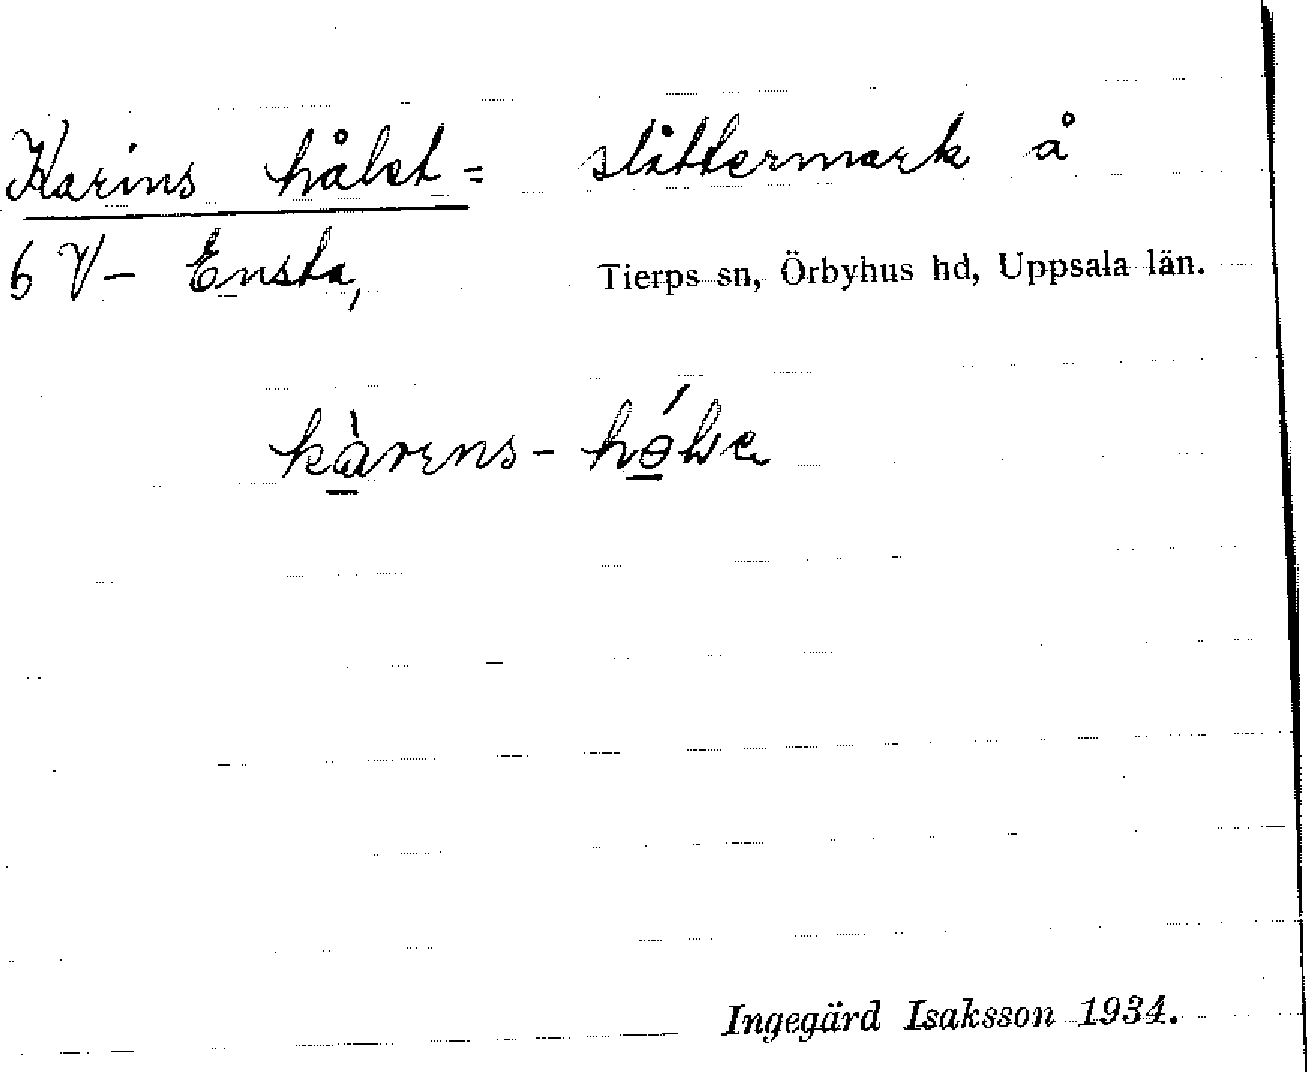 Karins hålet = slåttermark å
6 V – Ensta, Tierps sn, Örbyhus hd, Uppsala län.
Ingegärd Isaksson 1934.